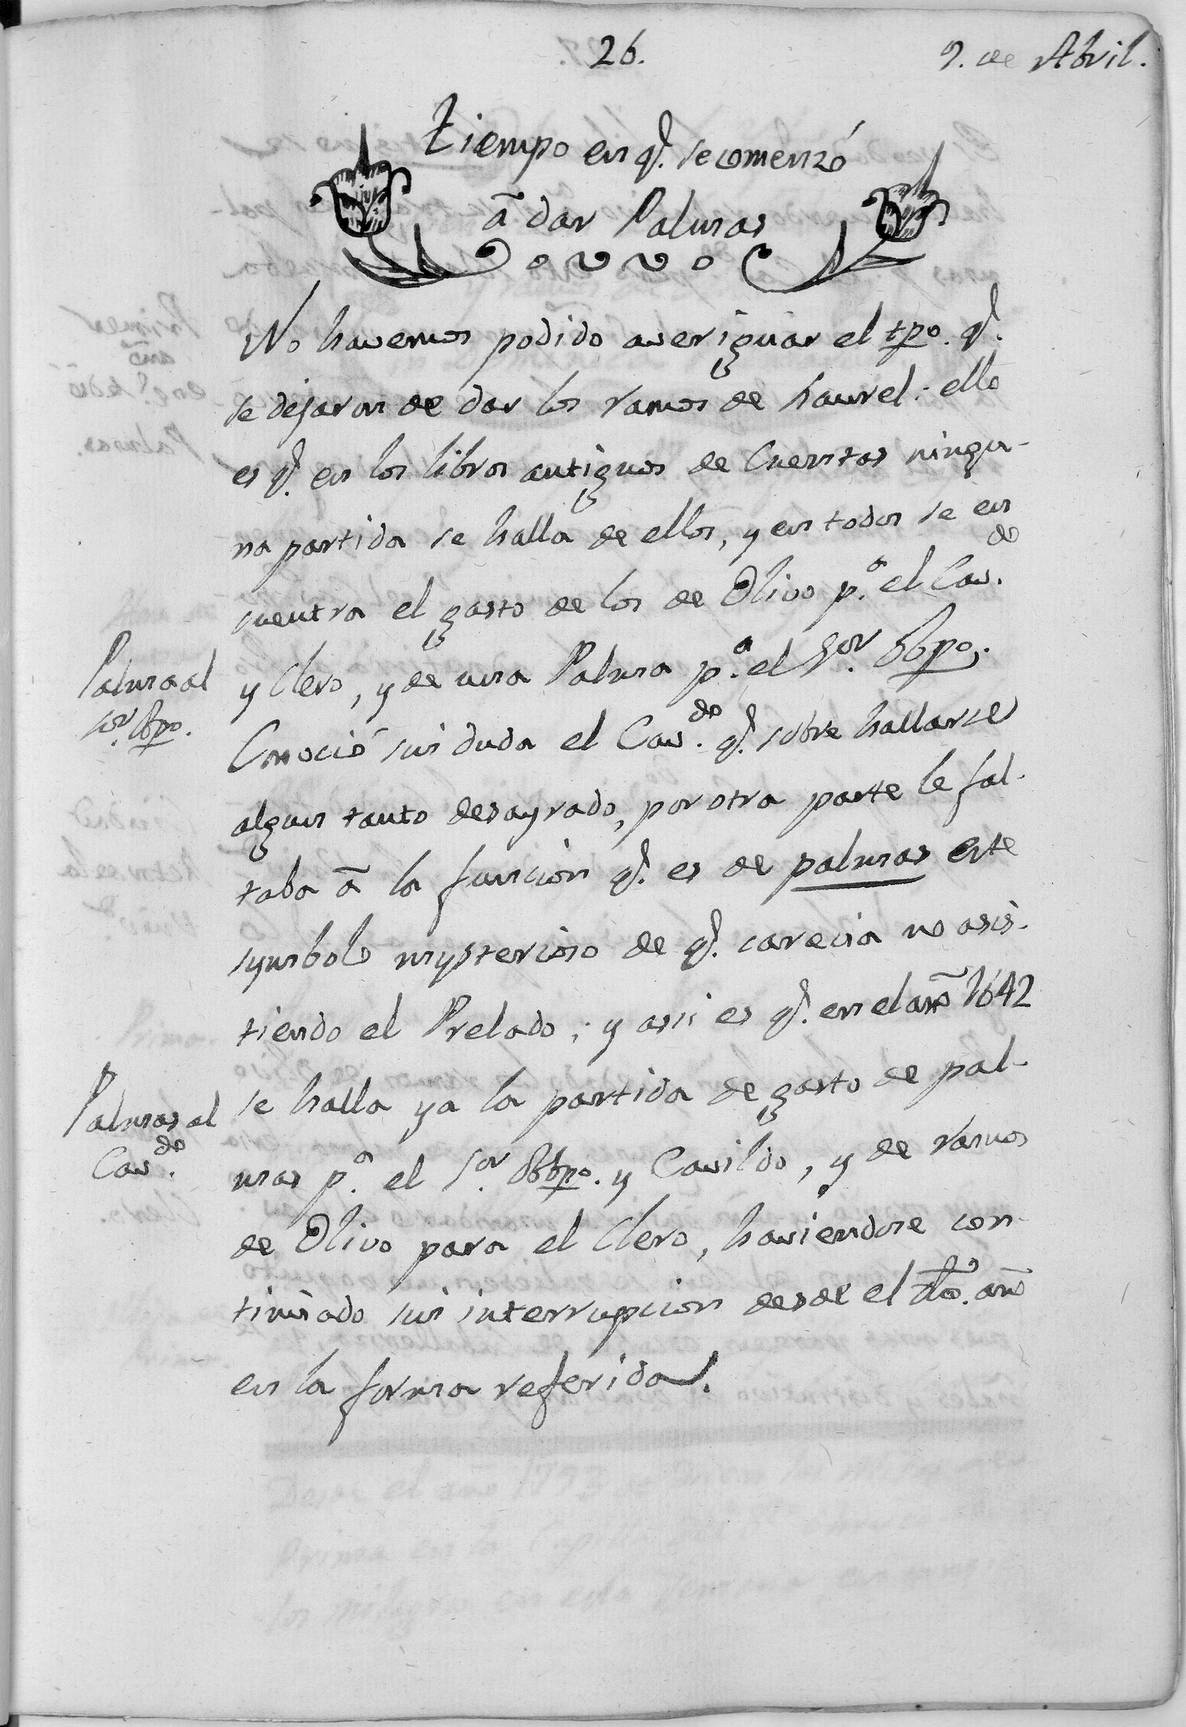 26.
9. de Abril.
Tiempo en q.e se comenzó
â dar Palmas
No havemos podido averiguar el tpo. q.e
se dejaron de dar los ramos de haurel: ello
es q.e en los libros antiguos de Cuentas ningu-
na partida se halla de ellos, y en todos se en
cuentra el gasto de los de Olivo p.a el Cav.do
y Clero, y de una Palma p.a el S.or Obpo.
Palma al
s.or Obpo.
Conoció sin duda el Cav.do q.e sobre hallarse
algun tanto desayrado, por otra parte le fal-
taba â la funcion q.e es de palmas este
symbolo mysterioso de q.e carecia no asis-
tiendo el Prelado; y asi es q.e en el año 1642
se halla ya la partida de gasto de pal-
Palmas al
Cav.do
mas p.a el S.or Obbpo. y Cavildo, y de ramos
de Olivo para el Clero, haviendose con-
tinuado sin interrupcion desde el dho. año
en la forma referida.